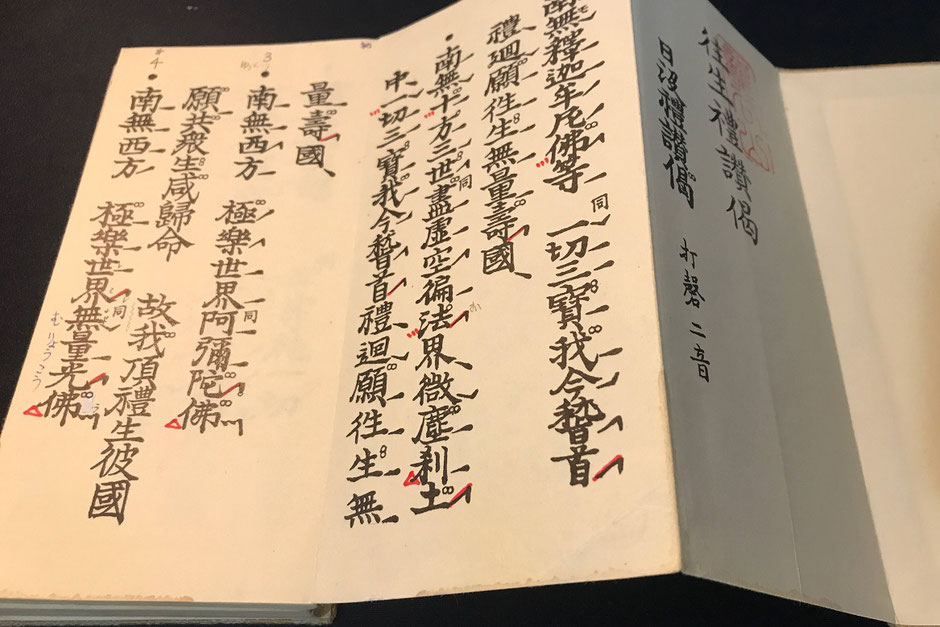 往生禮讃偈
日沒禮讃偈 打磬二音
南無釋迦牟尼佛等 同 一切三寶我今稽首
禮廻願往生無量壽國
南無十方三世盡同虛空徧法界微塵刹土
中一切三寶我今稽首禮廻願往生無
量壽國
3 南無西方 極樂世界同阿彌陀佛
願共衆生咸歸命 故我頂禮生彼國
4 南無西方 極樂世界同無量光佛
むりょうこう